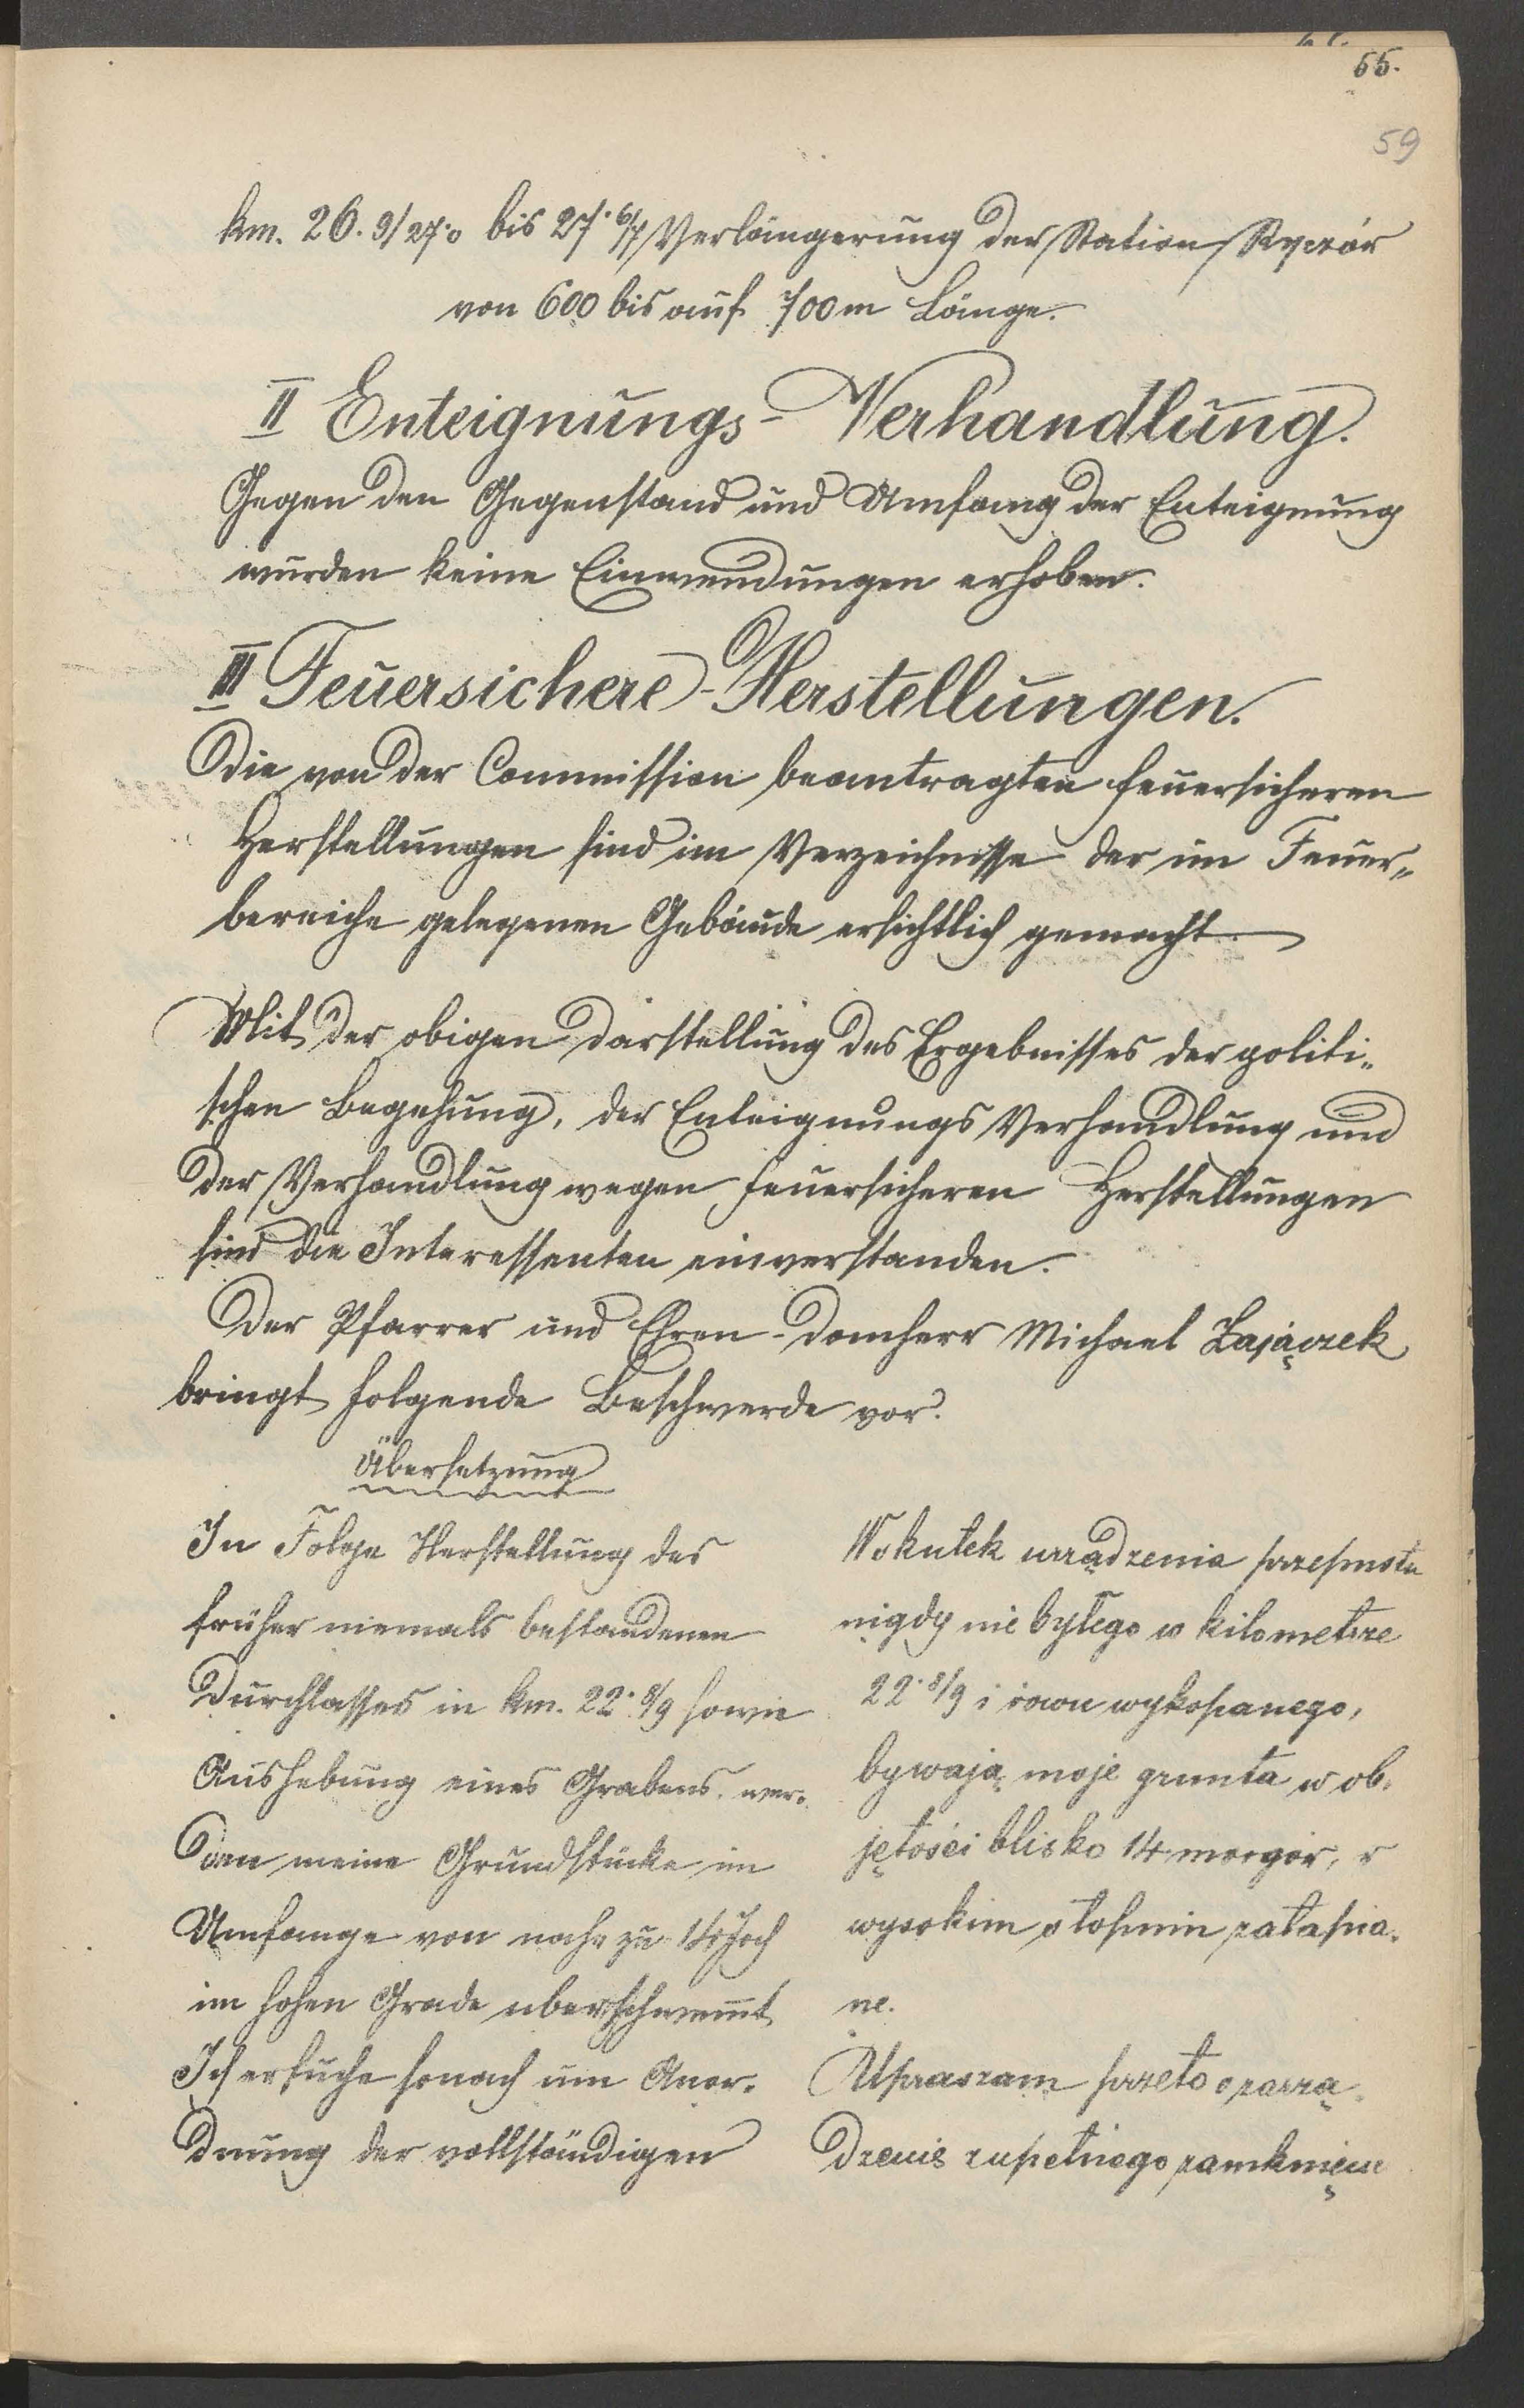 55.
59
km. 26. 9/27.0 bis 27. 6/7 Verlängerung der Station Ryczór
von 600 bis auf 700 m Länge.
II Enteignungs-Verhandlung.
Gegen den Gegenstand und Umfang der Enteignung
wurden keine Einwendungen erhoben.
III Feuersichere-Herstellungen.
Die von der Commission beantragten feuersicheren
Herstellungen sind im Verzeichnisse der im Feuer„
bereiche gelegenen Gebäude ersichtlich gemacht.
Mit der obigen Darstellung des Ergebnisses der politi„
schen Begehung, der Enteignungs Verhandlung und
der Verhandlung wegen feuersicheren Herstellungen
sind die Interessenten einverstanden.
Der Pfarrer und Ehren-Domherr Michael Zajączek
bringt folgende Beschwerde vor:
Übersetzung
In Folge Herstellung des
früher niemals bestandenen
Durchlasses in km. 22. 8/9 sowie
Aushebung eines Grabens wer„
den meine Grundstücke im
Umfange von nahe zu 14 Joch
im hohen Grade überschwemt
Ich ersuche sonach um Anor„
dnung der vollständigen
Wskutek urządzenia przepustu
nigdy nie byłego w kilometrze
22. 8/9 i rowu wykopanego,
bywają moje grunta w ob„
jętości blisko 14 morgów, w
wysokim stopniu zatapia„
ne.
Upraszam przeto o zarzą„
dzenie zupełnego zamknięcia